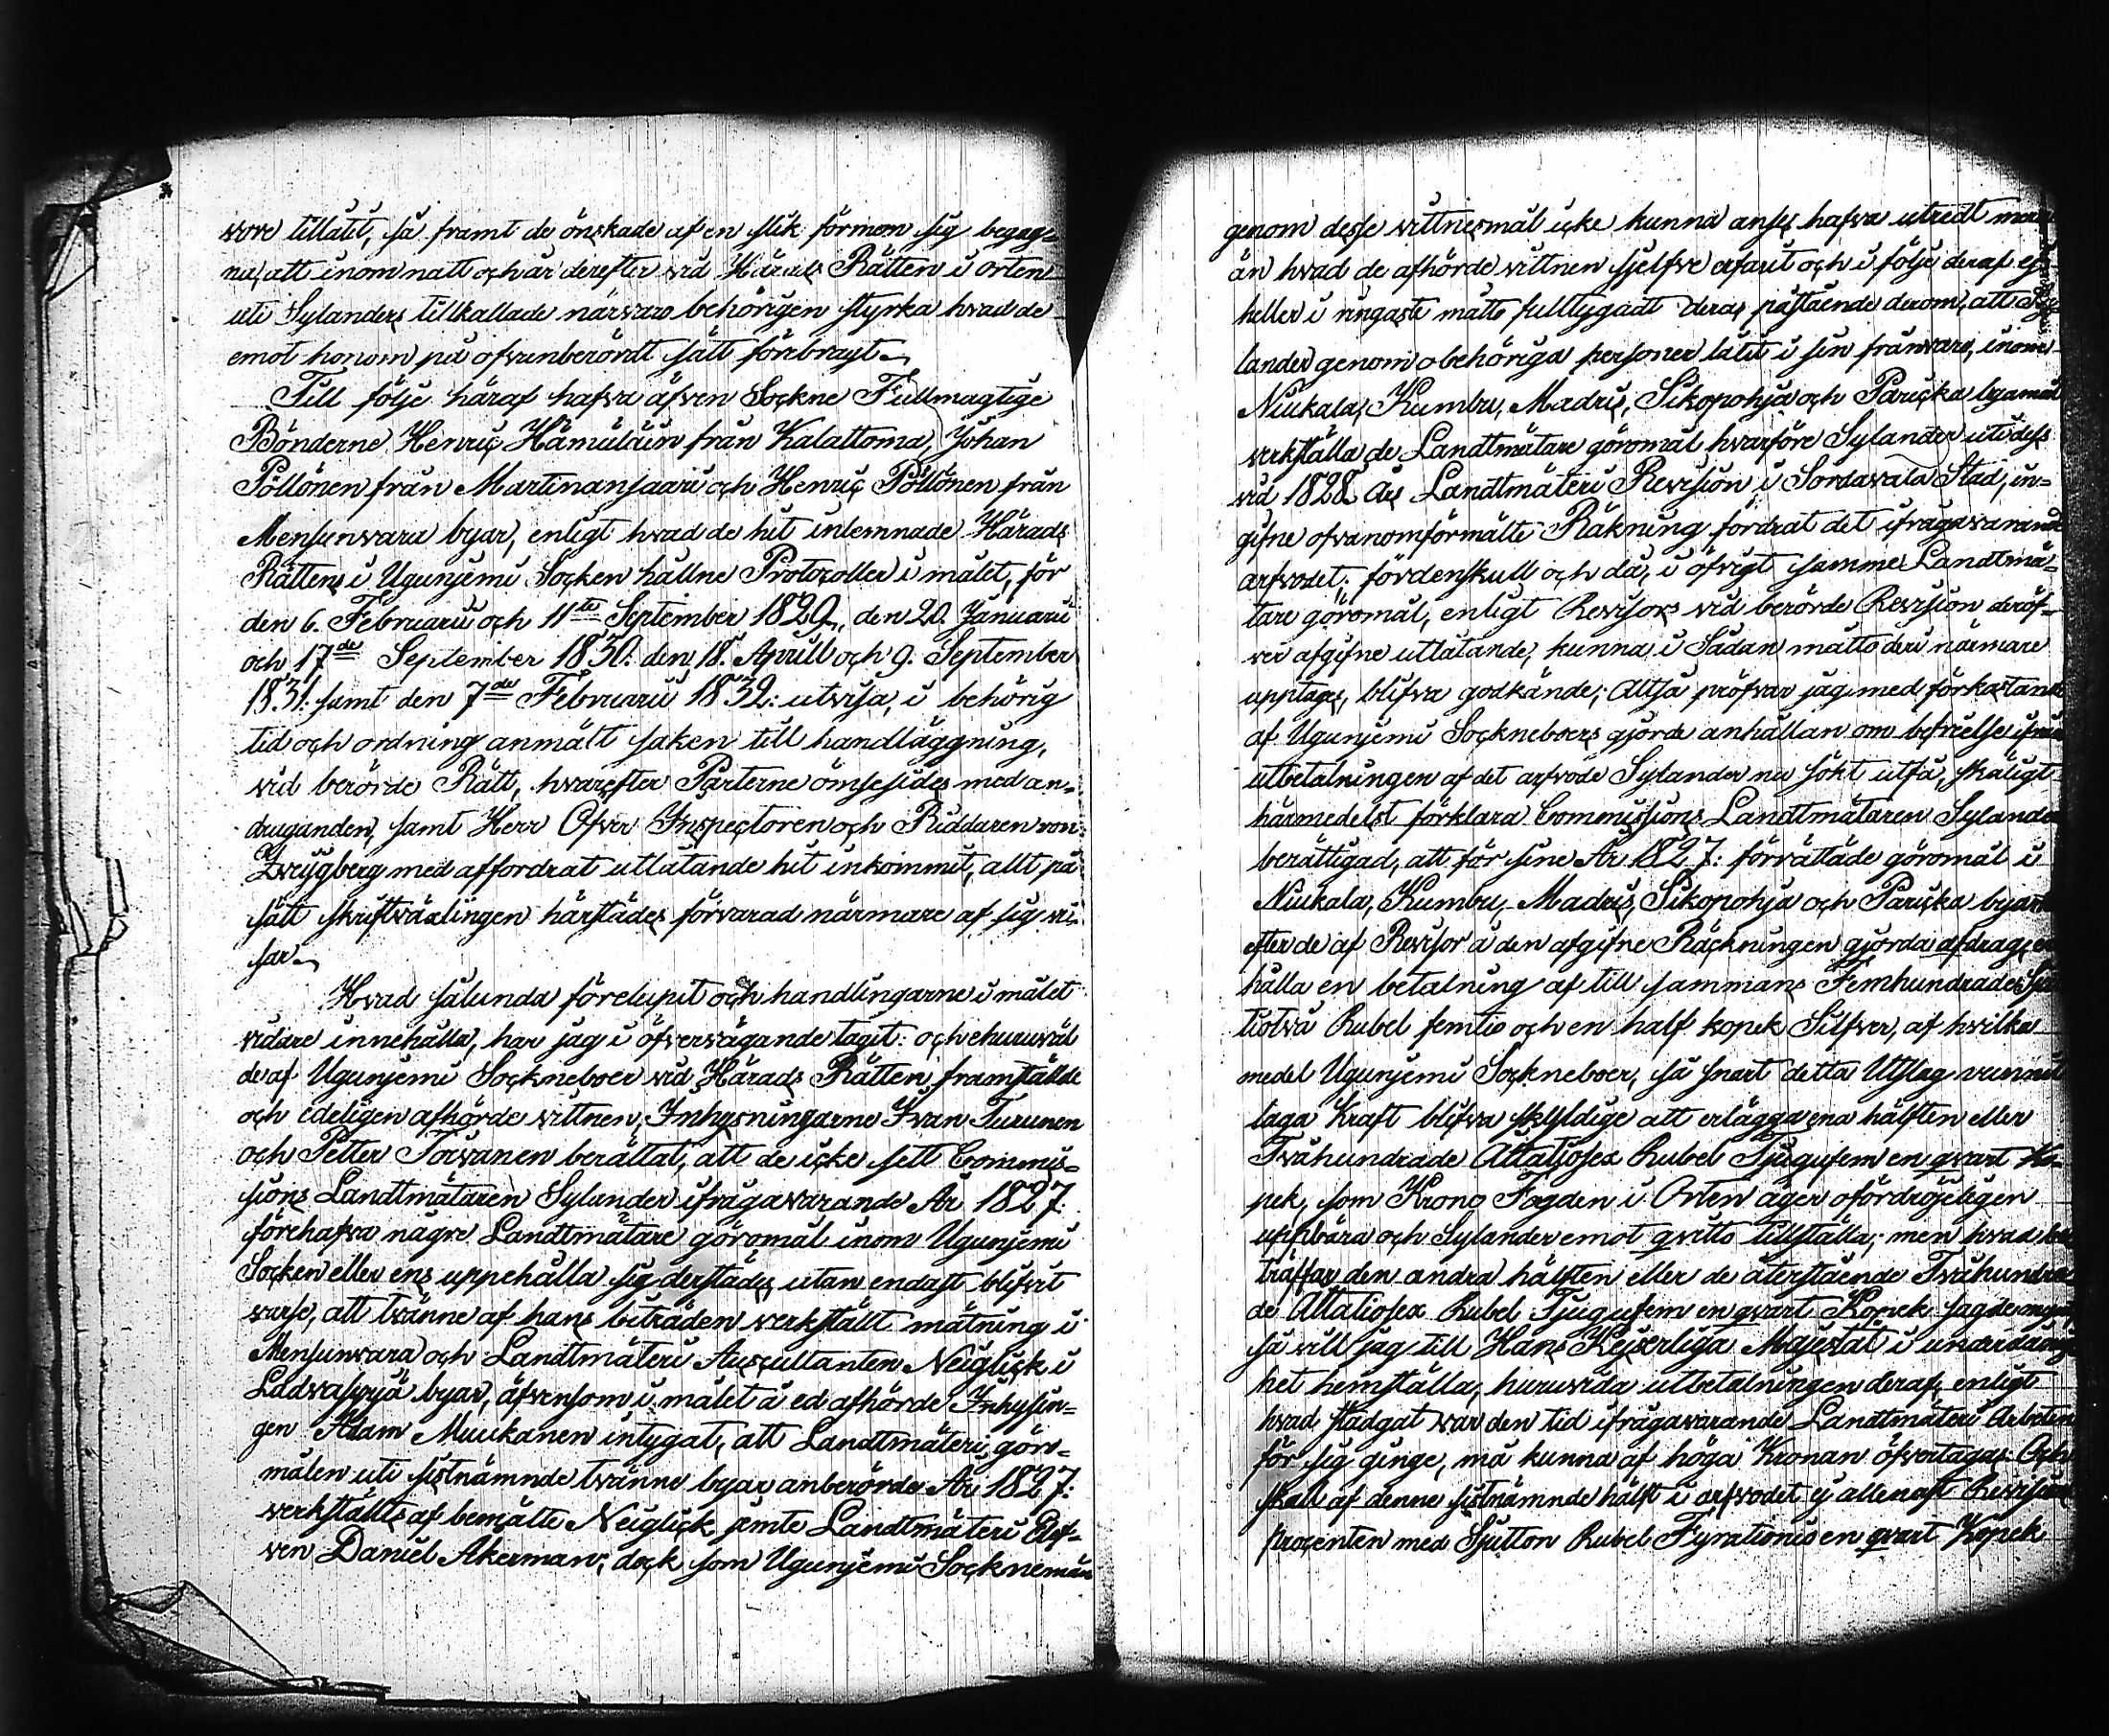 wore tillåtit, så framt de önskade af en slik förmon sig begag=
na, att inom natt och år derefter vid Härads Rätten i orten
uti Sylanders tillkallade närvaro behörigen styrka hvad de
emot honom på ofvanberördt sätt förebragt.
Till följe häraf hafva äfven Sockne Fullmagtige
Bönderne Henric Hämäläin från Kalattoma, Johan
Pöllönen från Martinansaari och Henric Pöllönen från
Mensunvara byar, enligt hvad de hit inlemnade Härads
Rättens i Ugunjemi Socken hållne Protocoller i målet, för
den 6. Februarii och 11te September 1829, den 20. Januarii
och 17de September 1830. den 18. Aprill och 9. September
1831. samt den 7de Februarii 1832: utvisa, i behörig
tid och ordning anmält saken till handläggning,
vid berörde Rätt, hvarefter Parterne ömsesides med an=
draganden, samt Herr Öfver Inspectoren och Riddaren von
Zweygberg med affordrat utlåtande hit inkommit, allt på
sätt skriftväxlingen härstädes förvarad närmare af sig vi=
sar.
Hvad sålunda förelupit och handlingarne i målet
vidare innehålla, har jag i öfvervägande tagit: och ehuruväl
de af Ugunjemi Sockneboer vid Härads Rätten framställde
och edeligen afhörde vittnen, Inhysningarne Ivan Turunen
och Petter Toivanen berättat, att de icke sett Commis=
sions Landtmätaren Sylander ifrågavarande År 1827.
förehafva några Landtmätare göromål inom Ugunjemi
Socken eller ens uppehålla sig derstädes, utan endast blifvit
varse, att tvänne af hans biträden verkställt mätning i
Mensunvara och Landtmäteri Auscultanten Neiglick i
Ladvasyrjä byar, äfvensom i målet å ed afhörde Inhysin=
gen Adam Muikanen intygat, att Landtmäteri göro=
målen uti sistnämnde tvänne byar anberörde År 1827:
verkställts af bemälte Neiglick jemte Landtmäteri Elef=
ven Daniel Åkerman; dock som Ugunjemi Socknemän
genom desse vittnesmål icke kunna anses hafva utredt mera
än hvad de afhörde vittnen sjelfve erfarit och i följe deraf ej
heller i ringaste måtto fulltygadt deras påstående derom, att Sy-
lander genom obehöriga personer låtit i sin frånvaro, inom
Niukala, Kumbu, Madris, Sikopohja och Paricka byamål
verkställa de Landtmätare göromål hvarföre Sylander uti dess
vid 1828. Års Landtmäteri Revision i Sordavala Stad, in=
gifne ofvanomförmälte Räkning fordrat det ifrågavarande
arfvodet; fördenskull och då, i öfvrigt samme Landtmä-
tare göromål, enligt Revisors vid berörde Revision deröf-
ver afgifne utlåtande, kunna i sådan måtto deri närmare
upptages, blifva godkände; Altså pröfvar jag med förkastande
af Ugunjemi Sockneboers gjorde anhållan om befrielse ifrån
utbetalningen af det arfvode Sylander nu sökt utfå, skäligt
härmedelst förklara Commissions Landtmätaren Sylander
berättigad, att för sine År 1827: förrättade göromål i
Niukala, Kumbu, Madris, Sikopohja och Paricka byar
efter de af Revisor å den afgifne Räckningen gjorda afdrag, er
hålla en betalning af till sammans Femhundrade Sju
tiotvå Rubel femtio och en half kopek Silfver, af hvilka
medel Ugunjemi Sockneboer, så snart detta Utslag vunnit
laga Kraft blifva skyldige att erlägga ena hälften eller
Tvåhundrade Åttatiosex Rubel Tjugufem en qvart Ko-
pek, som Krono Fogden i Orten äger ofördröjeligen
uppbära och Sylander emot qvitto tillställa; men hvad be
träffar den andra hälften eller de återstående Tvåhundra
de Åttatiosex Rubel Tjugufem en qvart Kopek
så vill jag till Hans Kejserliga Majestät i underdånig
het hemställa, huruvida utbetalningen deraf, enligt
hvad stadgat var den tid ifrågavarande Landtmäteri Arbeten
för sig ginge, må kunna af höga Kronan öfvertagas. Och
skall af denne sistnämnde hälft i arfvodet ej allenast Revisions
procenten med Sjutton Rubel Fyrationio en qvart Kopek